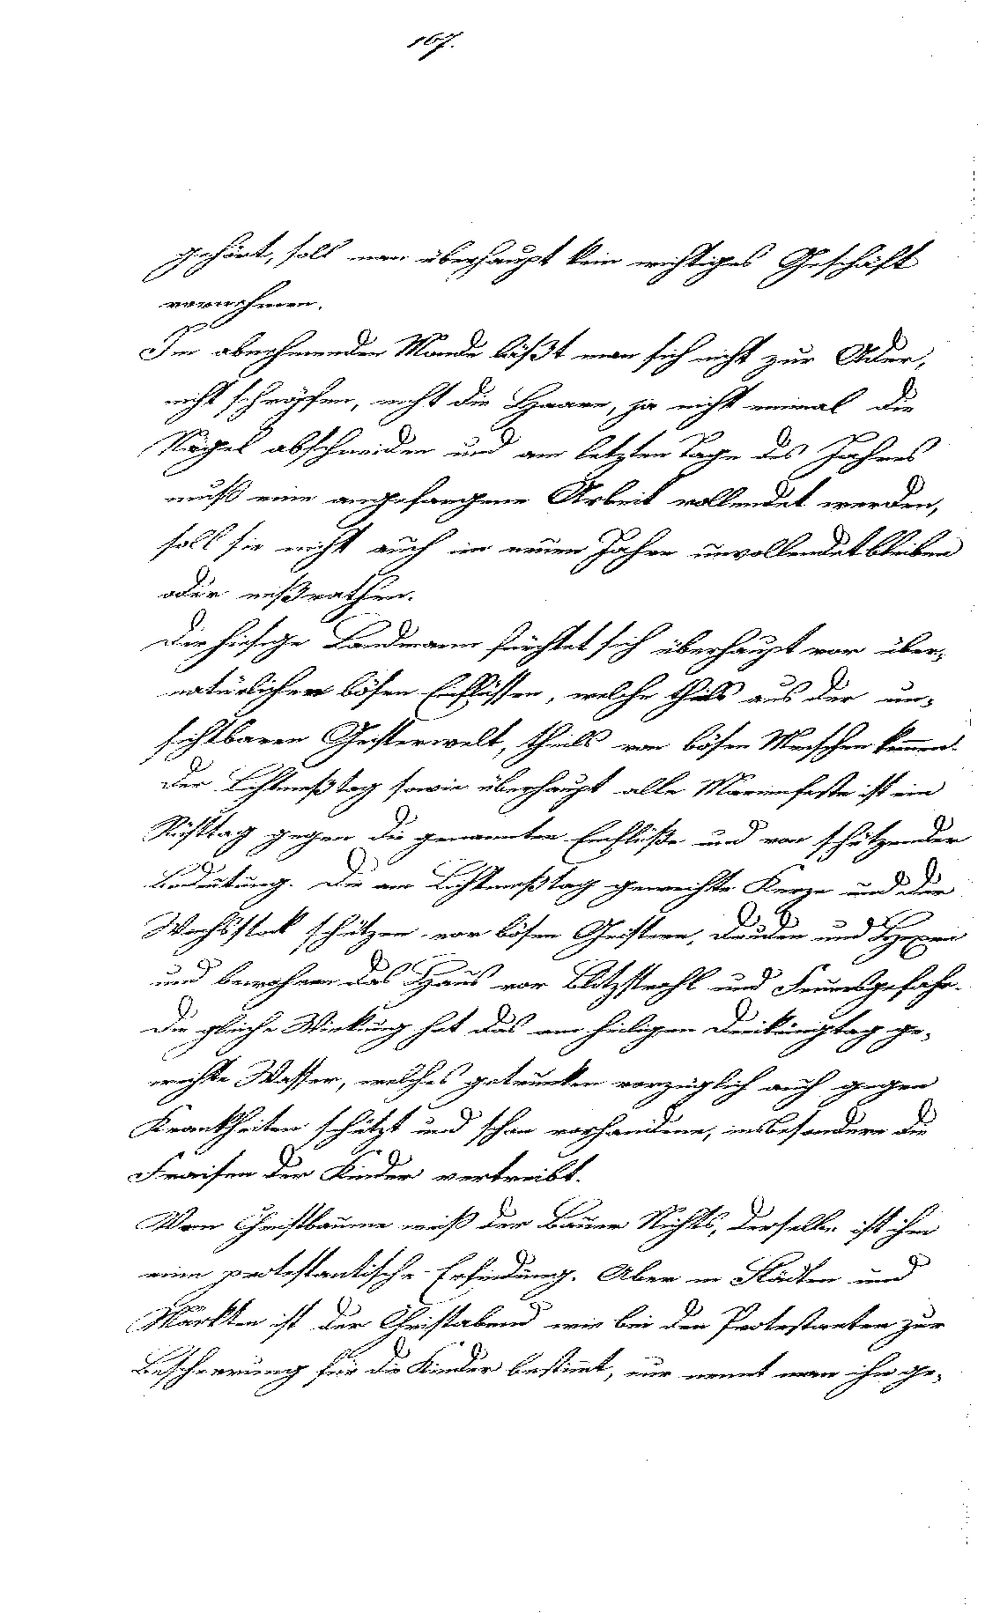 167.
gehört, soll man überhaupt kein wichtiges Geschäft
vornehmen.
Im abnehmenden Monde läßt man sich nicht zur Ader,
nicht schröpfen, nicht die Haare, ja nicht einmal die
Nägel abschneiden und am letzten Tage des Jahres
muß eine angefangene Arbeit vollendet werden,
soll sie nicht auch im neuen Jahre unvollendet bleiben
oder mißrathen.
Der hiesige Landmann fürchtet sich überhaupt vor über-
natürlichen bösen Einflüssen, welche theils aus der un-
sichtbaren Geisterwelt, theils von bösen Menschen kommen.
Der Lichtmeßtag sowie überhaupt alle Marienfeste ist ein
Rüsttag gegen die genannten Einflüße und von schützender
Bedeutung. Die am Lichtmeßtag geweihte Kerze und der
Wachsstock schützen vor bösen Geistern, Druden und Hexen
und bewahren das Haus vor Blitzstrahl und Feuersgefahr.
Die gleiche Wirkung hat das am heiligen Dreikönigtag ge-
weihte Wasser, welches getrunken vorzüglich auch gegen
Krankheiten schützt und schon vorhandene, insbesondere die
Fraisen der Kinder vertreibt.
Vom Christbaume weiß der Bauer Nichts, derselbe ist ihm
eine protestantische Erfindung. Aber in Städten und
Märkten ist der Christabend wie bei den Protestanten zur
Bescheerung für die Kinder bestimt, nur nennt man ihn ge-